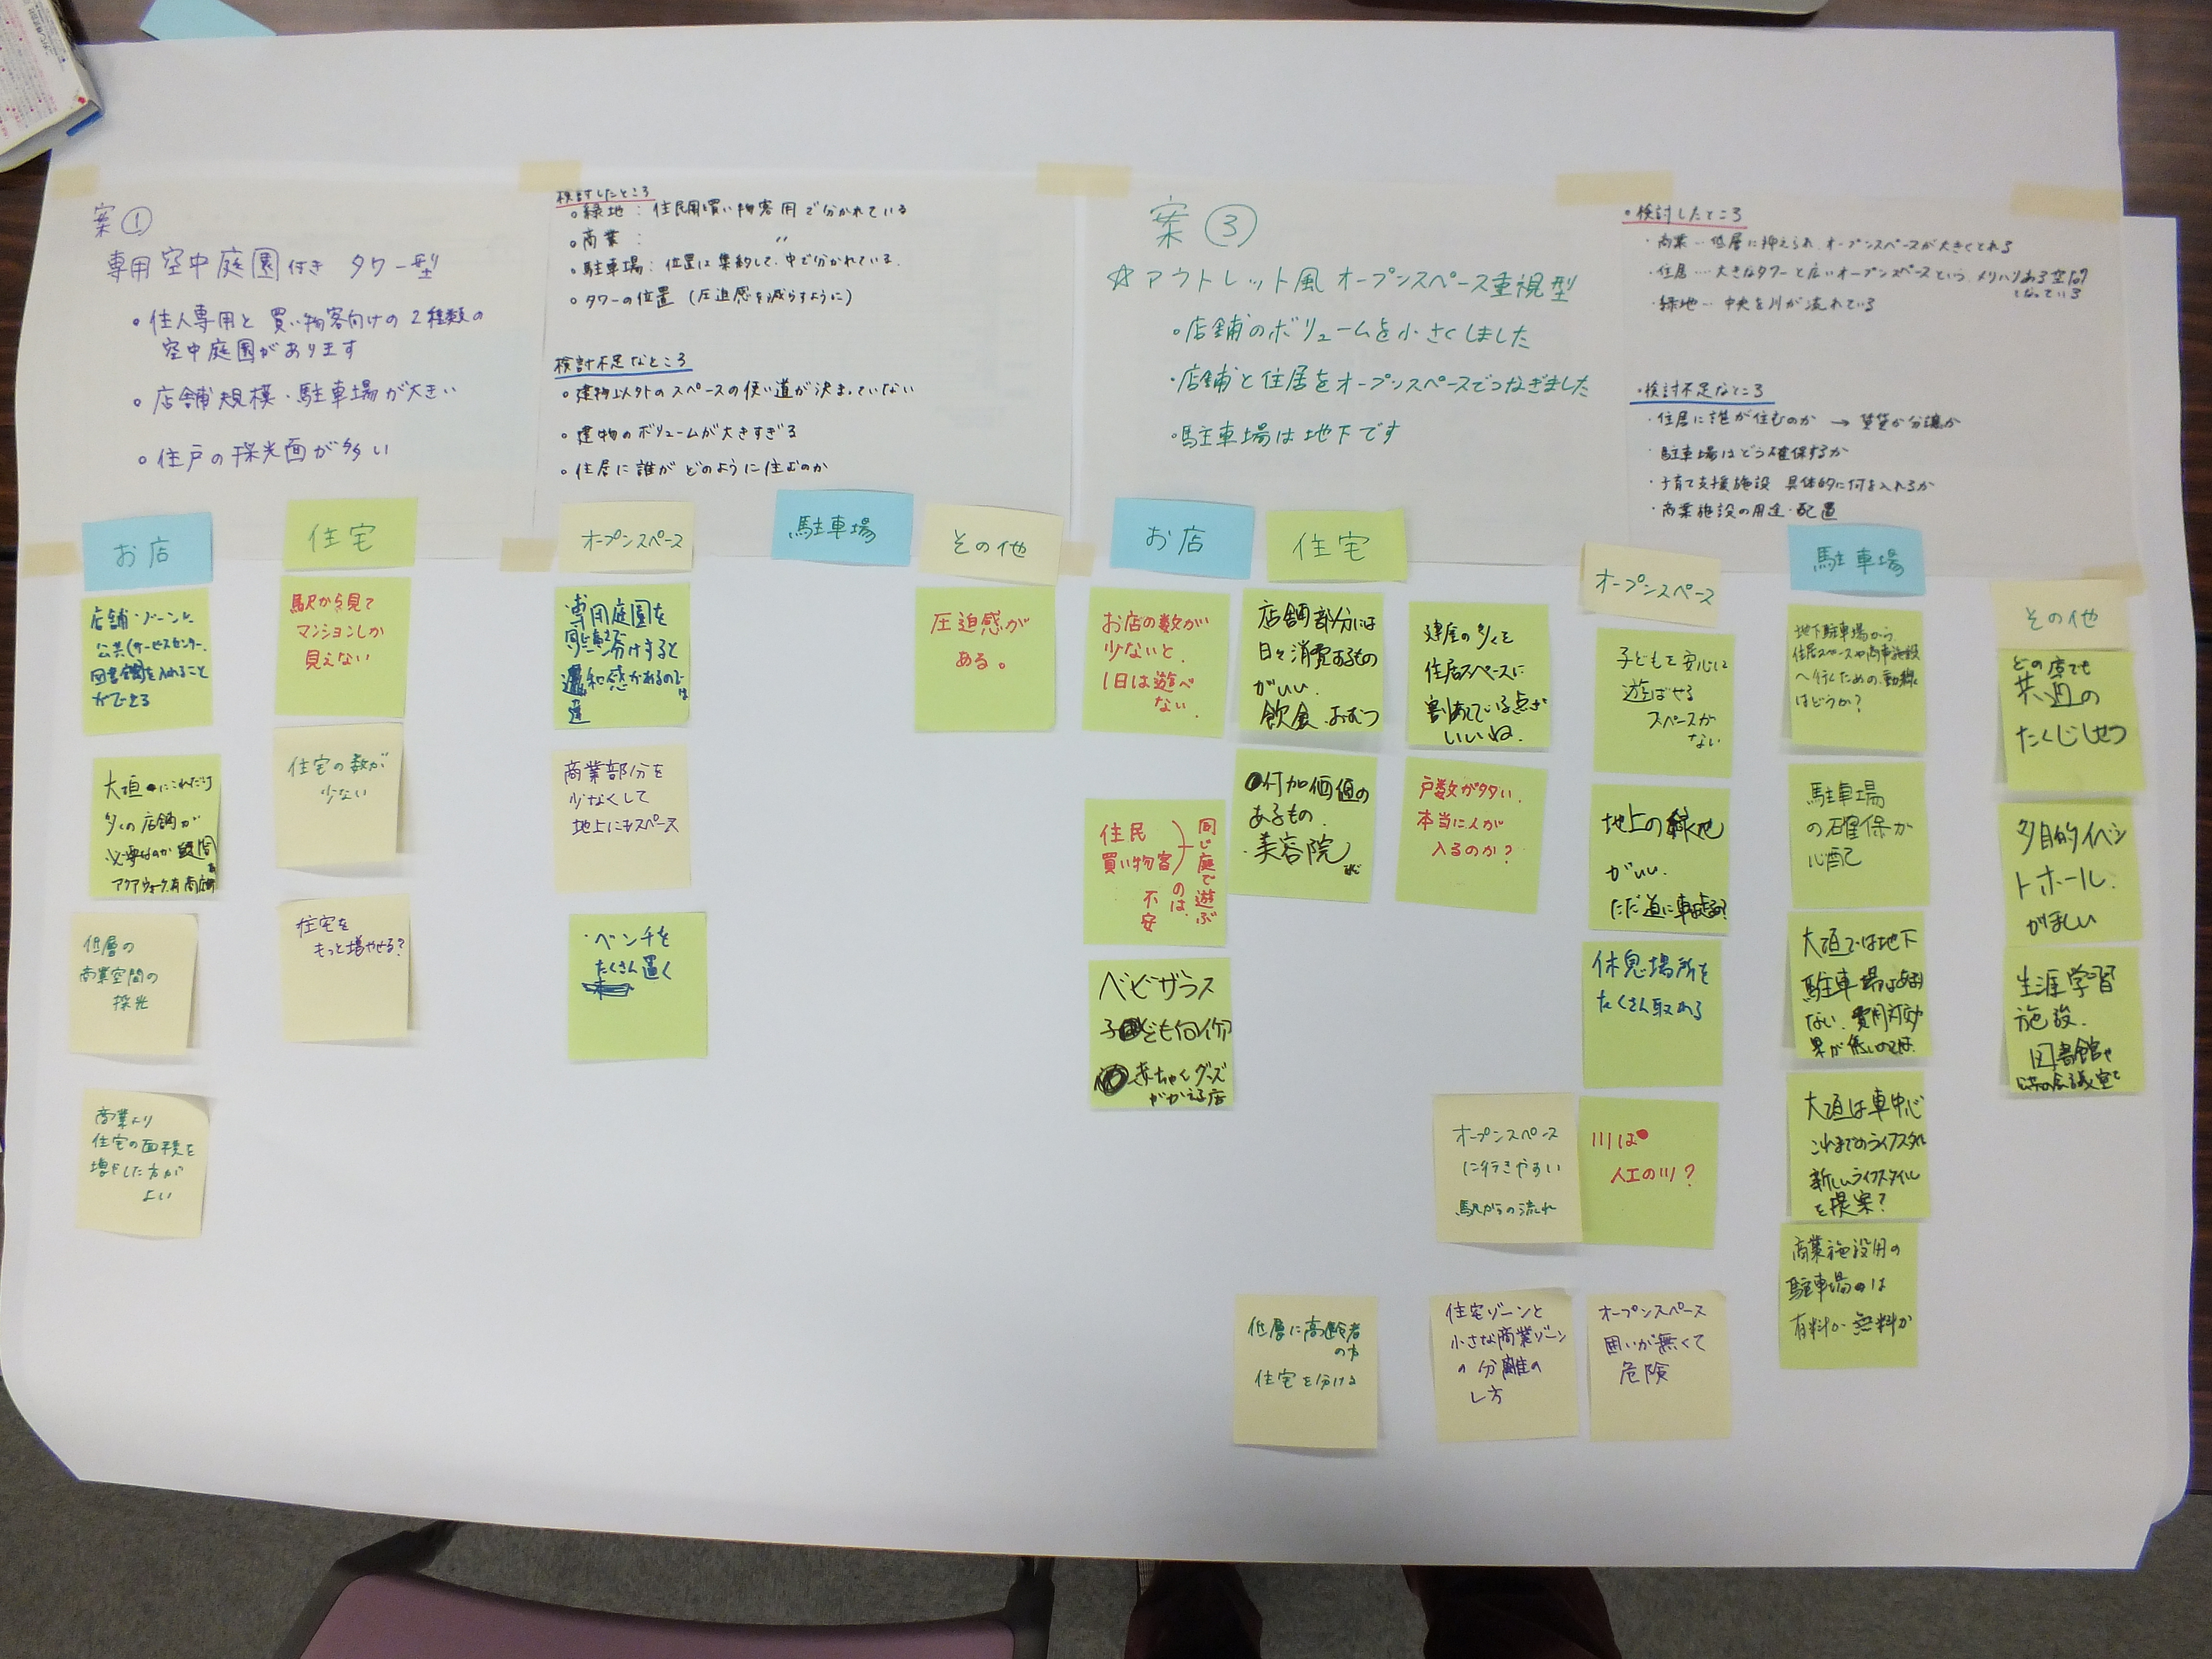 案①
専用空中庭園付き タワー型
・住人専用と買い物客向けの2種類の
空中庭園があります
・店舗規模・駐車場が大きい
・住戸の採光面が多い
検討したところ
・緑地：住民用と買い物客用で分かれている
・商業： 〃
・駐車場：位置は集約して、中で分かれている.
・タワーの位置（圧迫感を減らすように）
検討不足なところ
・建物以外のスペースの使い道が決まっていない
・建物のボリュームが大きすぎる
・住居に誰がどのように住むのか
案③
☆アウトレット風オープンスペース重視型
・店舗のボリュームを小さくしました
・店舗と住居をオープンスペースでつなぎました
・駐車場は地下です
・検討したところ
・商業…低層に抑えられ、オープンスペースが大きくとれる
・住居…大きなタワーと広いオープンスペースという、メリハリある空間
となっている
・緑地…中央を川が流れている
・検討不足なところ
・住居に誰が住むのか → 賃貸か分譲か
・駐車場はどう確保するか
・子育て支援施設 具体的に何を入れるか
・商業施設の用途・配置
お店
店舗・ゾーンに
公共(サービスセンター、
図書館を入れること
ができる
大垣にこれだけ
多くの店舗が
必要なのか
低層の
商業空間の
採光
商業より
住宅の面積を
増やした方が
よい
住宅
駅から見て
マンションしか
見えない
住宅の数が
少ない
住宅を
もっと増やせる？
オープンスペース
専用庭園を
分けすると
和感があるのでは
商業部分を
少なくして
地上にもスペース
・ベンチを
たくさん置く
駐車場
その他
圧迫感が
ある。
お店
お店の数が
少ないと、
1日は遊べ
ない.
住民
買い物客
同じ庭で遊ぶ
のは、
不安
ベビザラス
子ども向け
赤ちゃんグッズ
がかえる店
住宅
店舗部分には
日々消費するもの
がいい.
飲食、おむつ
付加価値の
あるもの.
・美容院
建屋の多くを
住居スペースに
割あてている点が
いいね.
戸数が多い.
本当に人が
入るのか？
低層に高齢者
の方
住宅を分ける
オープンスペース
子どもを安心して
遊ばせる
スペースが
ない
地上の緑地
がいい.
ただ道に車
休息場所を
たくさん取れる
オープンスペース
に行きやすい
駅からの流れ
川は
人工の川？
住宅ゾーンと
小さな商業ゾーン
の分離の
し方
オープンスペース
囲いが無くて
危険
駐車場
地下駐車場から
住居スペースや商業施設
へ行くための動線
はどうか？
駐車場
の確保が
心配
大垣では地下
駐車場はあまり
ない.費用対効
果が低いのでは.
大垣は車中心
これまでのライフスタイル
新しいライフスタイル
を提案？
商業施設用の
駐車場は
有料か無料か
その他
どの店でも
共通の
たくじしせつ
多目的イベン
トホール.
がほしい
生涯学習
施設.
図書館や
会議室